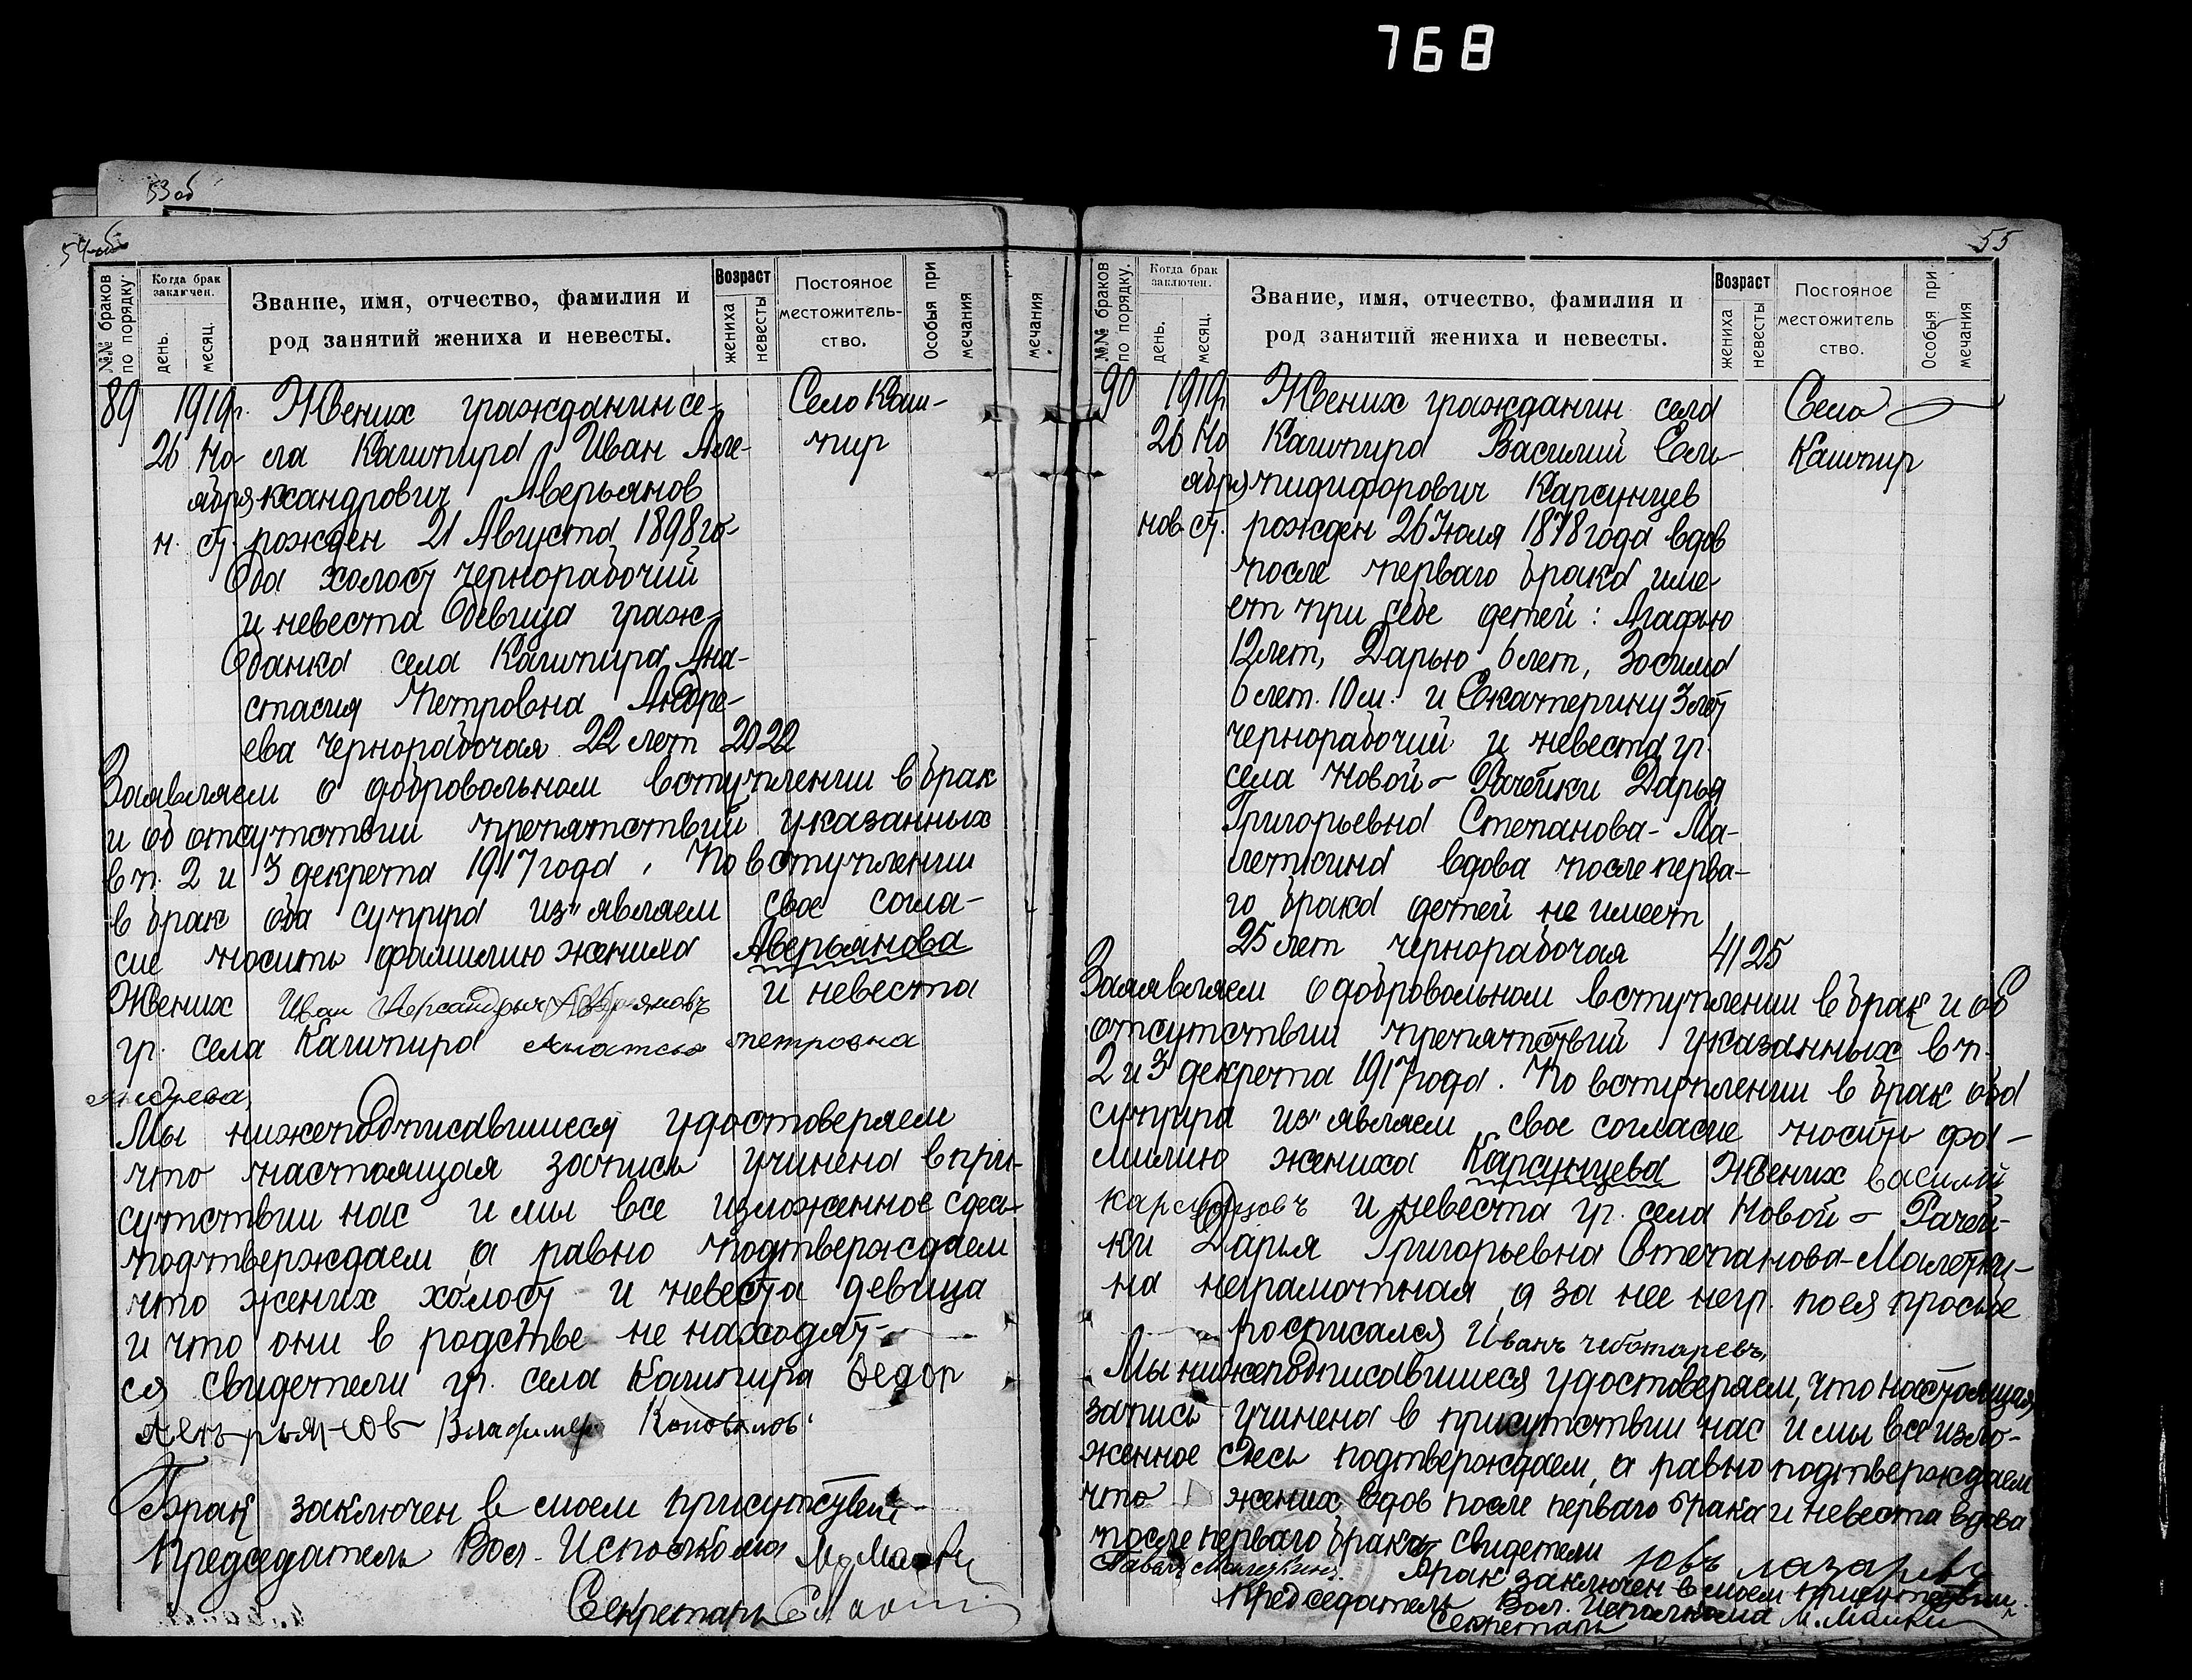 768
53 об
54 об
№№ браков по порядку.
Когда брак заключен.
день.
месяц.
Звание, имя, отчество, фамилия и
род занятий жениха и невесты.
Возраст
жениха
невесты
Постояное
местожитель-
ство.
Особыя при
мечания
89 1919г. Жених гражданин се- Село Каш-
26 Но- ла Кашпира Иван Але- пир
ября ксандрович Аверьянов
н. ст. рожден 21 Августа 1898 го-
да холост чернорабочий
и невеста девица граж-
данка села Кашпира Ана-
стасия Петровна Андре-
ева чернорабочая 22 лет 20 22
Заявляем о добровольном вступлении в брак
и об отсутствии препятствий указанных
в п. 2 и 3 декрета 1917 года. По вступлении
в брак оба супруга из"являем свое согла-
сие носить фамилию жениха Аверьянова
Жених Иван и невеста
гр. села Кашпира петровна
Мы нижеподписавшиеся удостоверяем
что настоящая запись учинена в при-
сутствии нас и мы все изложенное сдесь
подтверждаем а равно подтверждаем
что жених холост и невеста девица
и что они в родстве не находят-
ся свидетели гр. села Кашпира Федор
Владимер Коновалов
Брак заключен в моем присутствии
Председатель Вол. Исполкома
Секретарь
мечания
55
№№ браков по порядку.
Когда брак заключен.
день.
месяц.
Звание, имя, отчество, фамилия и
род занятий жениха и невесты.
Возраст
жениха
невесты
Постояное
местожитель
ство.
Особыя при
мечания
90 1919г Жених гражданин села Село
26 Но Кашпира Василий Ели- Кашпир
ября пидифорович Карсунцев
нов. ст. рожден 26 Июля 1878 года вдов
после перваго брака име-
ет при себе детей: Агафью
12 лет, Дарью 6 лет, Зосима
6 лет. 10 м. и Екатерину 3 лет
чернорабочий и невеста гр.
села Новой-Рачейки Дарья
Григорьевна Степанова-Ма-
леткина вдова после перва-
го брака детей не имеет
25 лет чернорабочая 41 25
Заявляем о добровольном вступлении в брак и об
отсутствии препятствий указанных в п.
2 и 3 декрета 1917 года. По вступлении в брак оба
супруга из"являем свое согласие носить фа-
милию жениха Карсунцева Жених василий
и невеста гр. села Новой-Рачей-
ки Дарья Григорьевна Степанова-Малетки-
на неграмотная, а за нее негр. по ея просьбе
росписался Иванъ чеботаревъ,
Мы нижеподписавшиеся удостоверяем, что настоящая
запись учинена в присутствии нас и мы все изло-
женное сдесь подтверждаем, а равно подтверждаем
что жених вдов после перваго брака и невеста вдова
после перваго брака свидетели лазаревъ
Брак заключен в моем присутствии
Председатель Вол. Исполкома
Секретарь